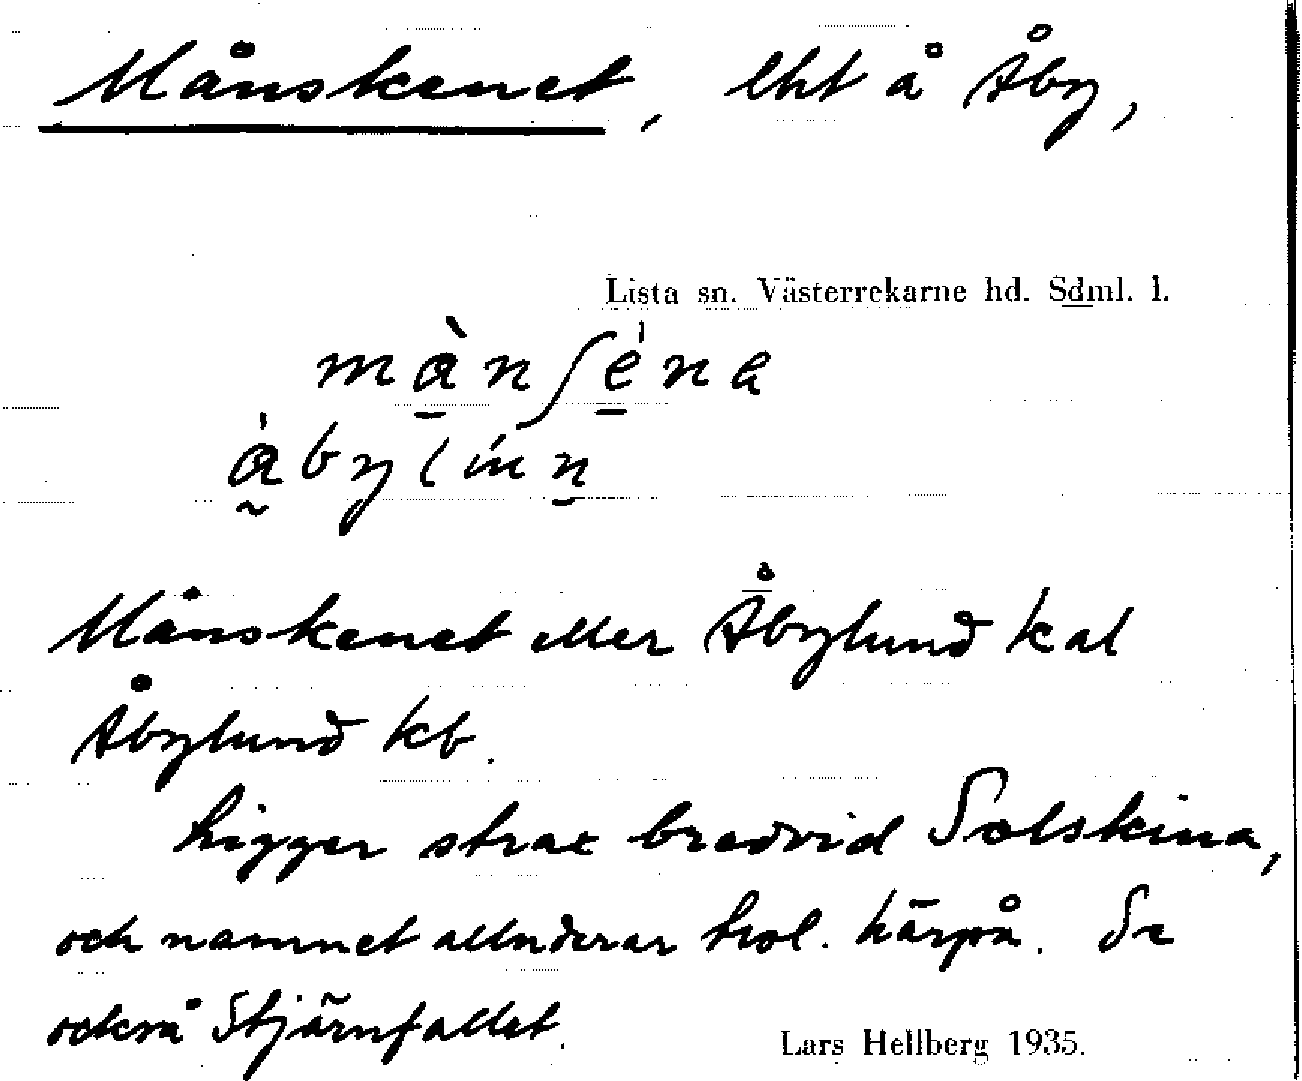 Månskenet, lht å Åby,
Lista sn. Västerrekarne hd. Sdml. l.
mànʃéna
åbylún
Månskenet eller Åbylund kal
Åbylund kb.
Ligger strax bredvid Solskina,
och namnet alluderar trol. härpå. Se
också Stjärnfallet.
Lars Hellberg 1935.